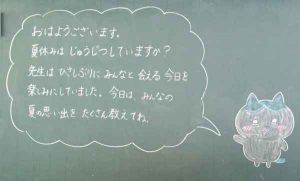 おはようございます。
夏休みは じゅうじつしていますか？
先生は ひさしぶりに みんなと 会える 今日を
楽しみにしていました。今日は、みんなの
夏の思い出を たくさん教えてね。